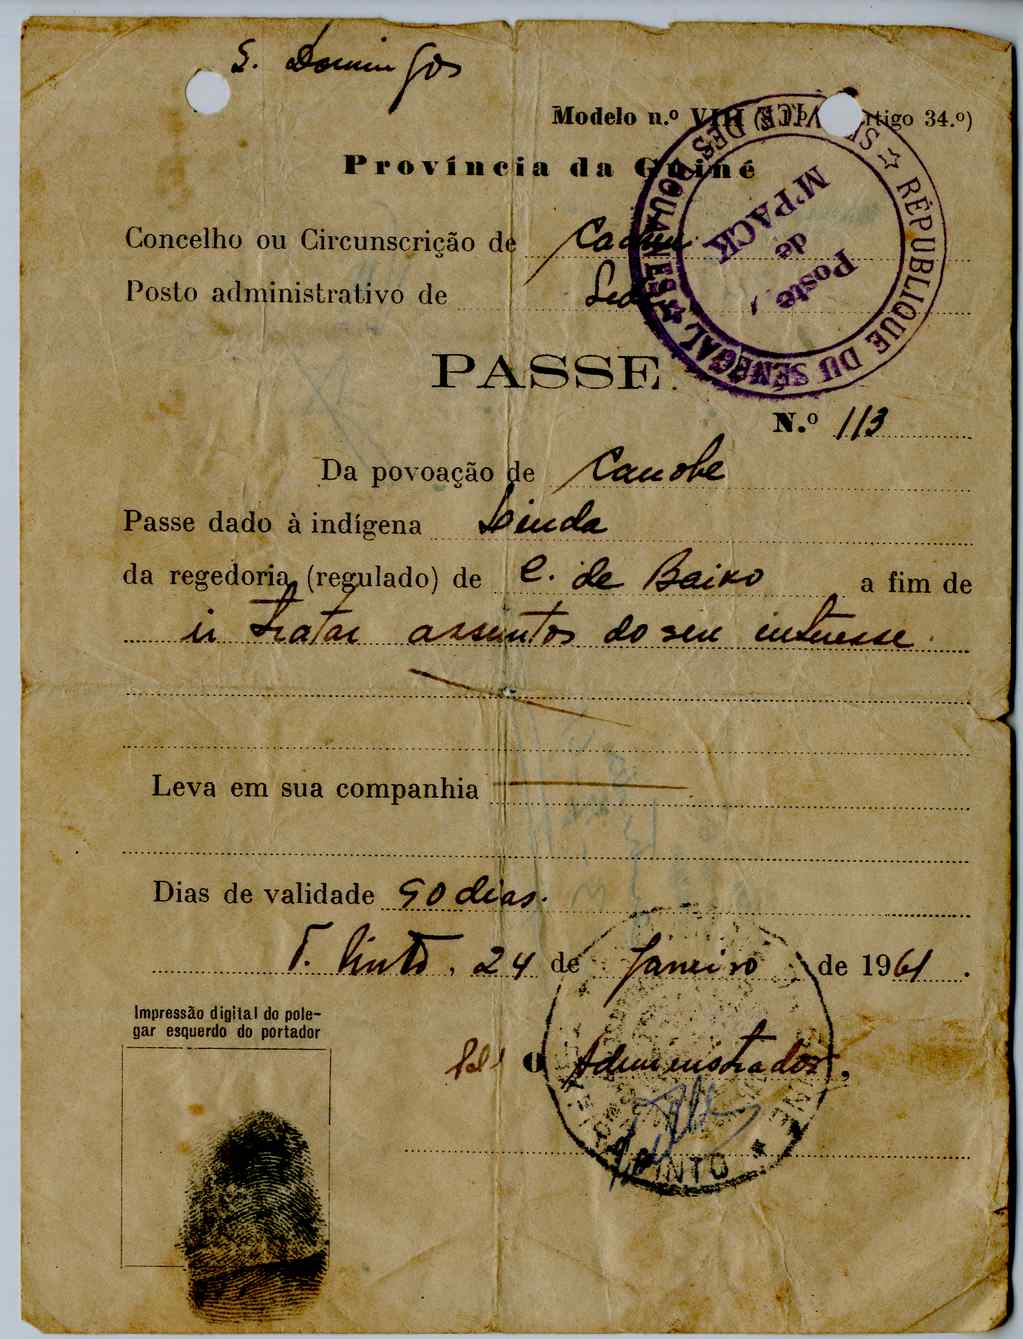 S. Domingos
Modelo n.º VIII ( Artigo 34.º)
Província da Guiné
Concelho ou Circunscrição de
Posto administrativo de
SERVICE DES DOUANES ☆ RÉPUBLIQUE DU SÉNÉGAL ☆
Poste
de
M'PACK
PASSE.
N.º 113
Da povoação de Canobe
Passe dado à indígena Linda
da regedoria (regulado) de C. de Baixo a fim de
ir tratar assuntos do seu interesse.
Leva em sua companhia
Dias de validade 90 dias.
T. Pinto, 24 de Janeiro de 1961.
Impressão digital do pole-
gar esquerdo do portador
O Administrador,
PINTO